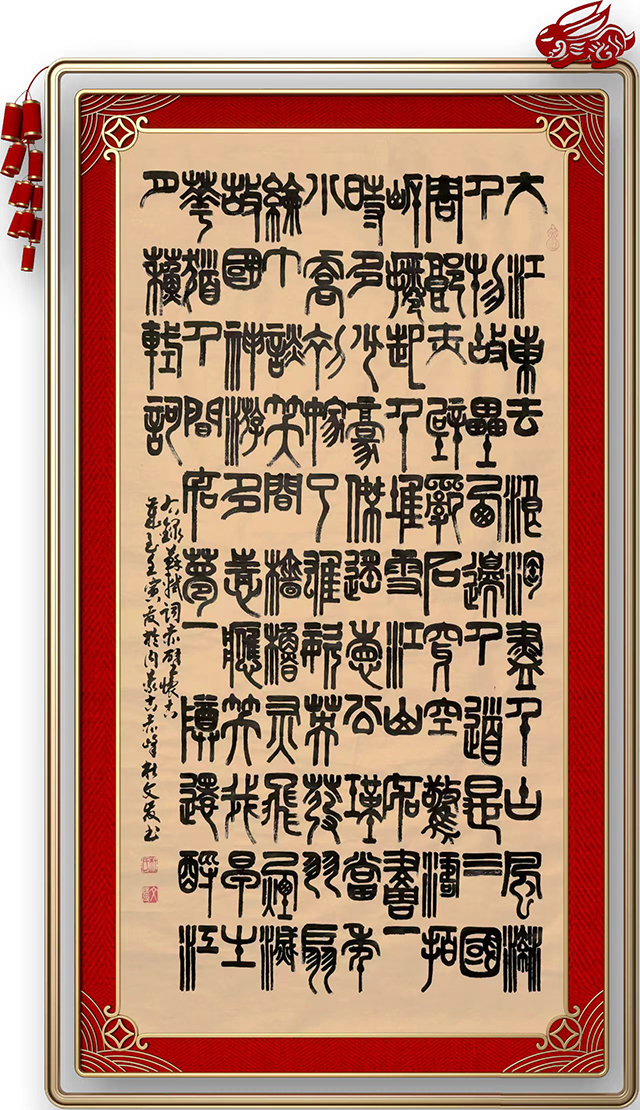 大江東去浪淘盡千山風流
人物故壘西邊人道是三國
周郎赤壁亂石穿空驚濤拍
岸捲起千堆雪江山如畫一
時多少豪傑遙想公瑾當年
小喬初嫁了雄姿英發羽扇
綸巾談笑間檣櫓灰飛煙滅
故國神游多情應笑我早生
華髮人間如夢一尊還酹江
月蘇軾詞
右錄蘇軾詞赤壁懷古
歲在壬寅夏於內蒙古赤峰杜文发书